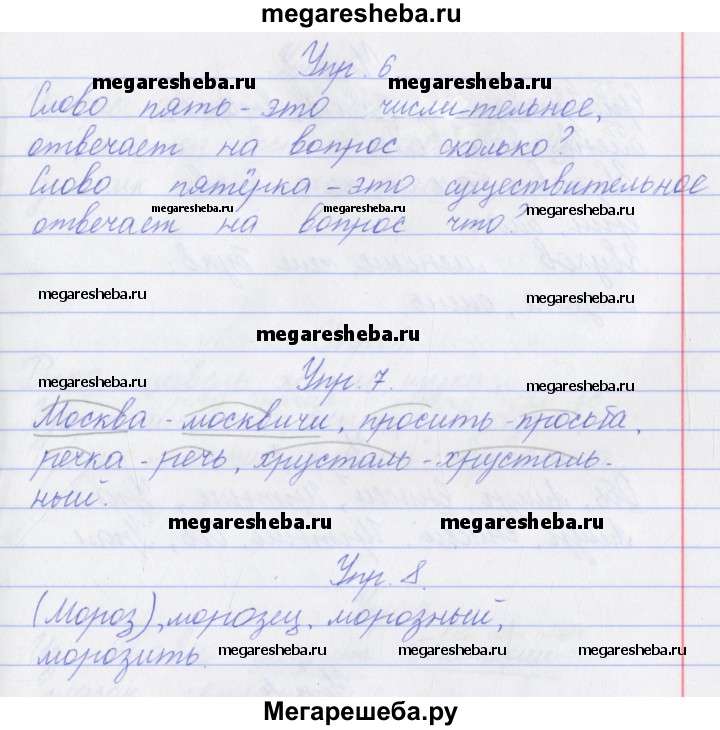 megaresheba.ru
Упр. 6
megaresheba.ru megaresheba.ru
Слово пять - это числительное,
отвечает на вопрос сколько?
Слово пятёрка - это существительное
megaresheba.ru megaresheba.ru megaresheba.ru
отвечает на вопрос что?
megaresheba.ru megaresheba.ru
megaresheba.ru
Упр. 7.
megaresheba.ru megaresheba.ru
Москва - москвичи, просить - просьба,
речка - речь, хрусталь - хрусталь-
ный.
megaresheba.ru megaresheba.ru
Упр. 8.
(Мороз), морозец, морозный,
морозить. megaresheba.ru megaresheba.ru megaresheba.ru
Мегарешеба.ру